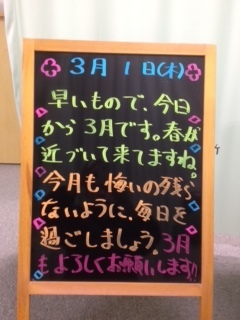 3月1日(木)
早いもので、今日
から3月です。春が
近づいて来てますね。
今月も悔いの残ら
ないように、毎日を
過ごしましょう。3月
もよろしくお願いします!!